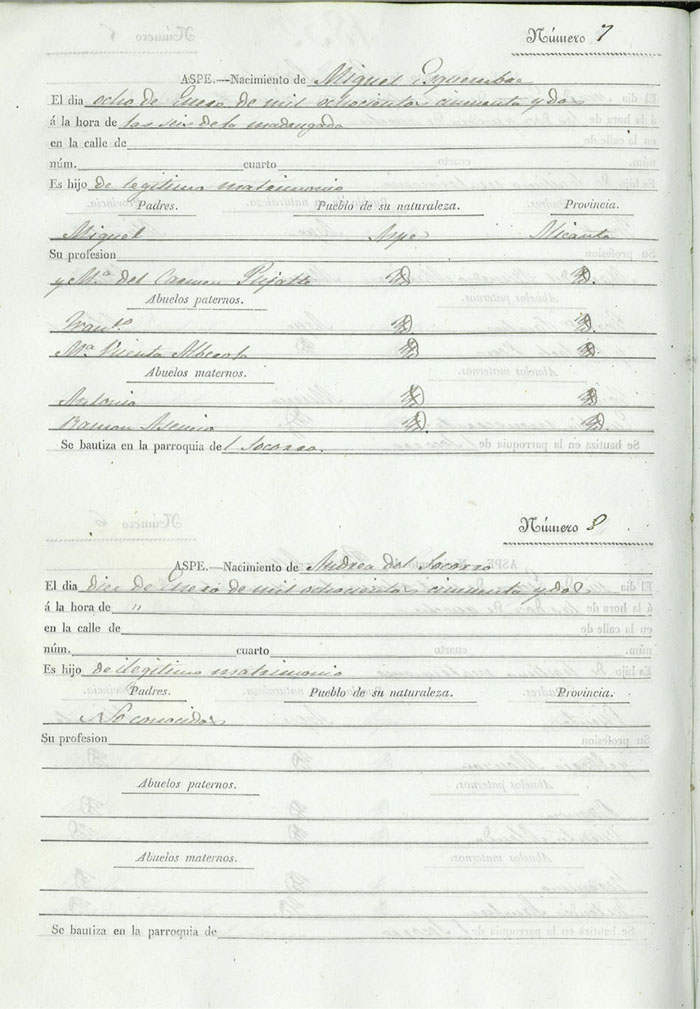 Número 7
ASPE.—Nacimiento de Miguel
El dia ocho de Enero de mil ochocientos cincuenta y dos
á la hora de las seis de la madrugada
en la calle de
núm. cuarto
Es hijo de legitimo matrimonio
Padres. Pueblo de su naturaleza. Provincia.
Miguel Aspe Alicante
Su profesion
y Mª del Carmen
Abuelos paternos.
Mª Vicenta Alberola
Abuelos maternos.
Antonio
Ramon Asencio
Se bautiza en la parroquia del Socorro.
Número 8
ASPE.—Nacimiento de Andrea del Socorro
El dia diez de Enero de mil ochocientos cincuenta y dos
á la hora de "
en la calle de
núm. cuarto
Es hijo de ilegitimo matrimonio
Padres. Pueblo de su naturaleza. Provincia.
No conocidos
Su profesion
Abuelos paternos.
Abuelos maternos.
Se bautiza en la parroquia de